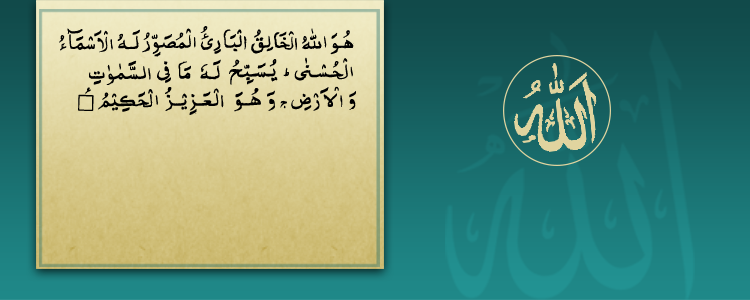 هُوَ اللّٰهُ الْخَالِقُ الْبَارِئُ الْمُصَوِّرُ لَهُ الْاَسْمَآءُ
الْحُسْنٰى ؕ یُسَبِّحُ لَهٗ مَا فِی السَّمٰوٰتِ
وَ الْاَرْضِ ۚ وَ هُوَ الْعَزِیْزُ الْحَكِیْمُ
الله